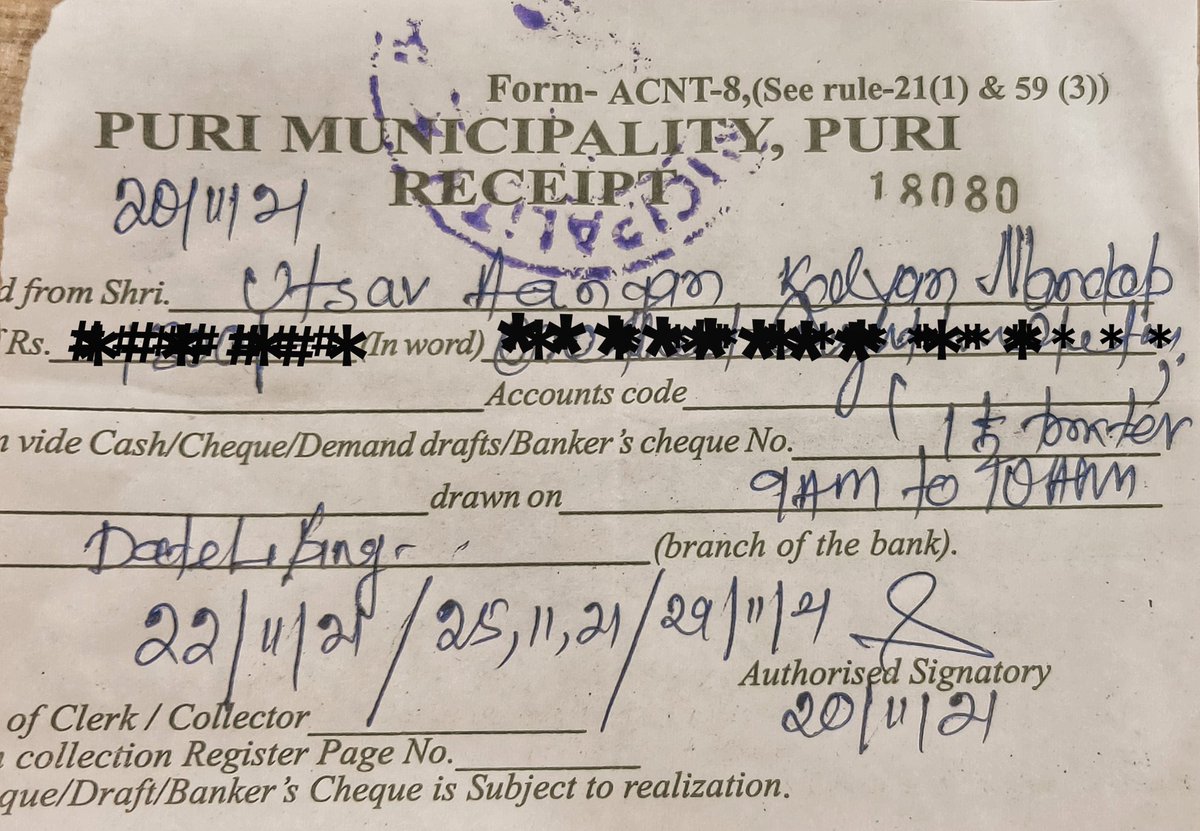 Form- ACNT-8,(See rule-21(1) & 59 (3))
PURI MUNICIPALITY, PURI
RECEIPT
20/11/21
18080
d from Shri. Utsav Aangan Kalyan Mandap
Rs. (In word)
Accounts code
n vide Cash/Cheque/Demand drafts/Banker's cheque No. 1
drawn on 9AM to 10AM
(branch of the bank).
22/11/21 / 25,11,21 / 29/11/21
Authorised Signatory
20/11/21
of Clerk / Collector
n collection Register Page No.
que/Draft/Banker's Cheque is Subject to realization.